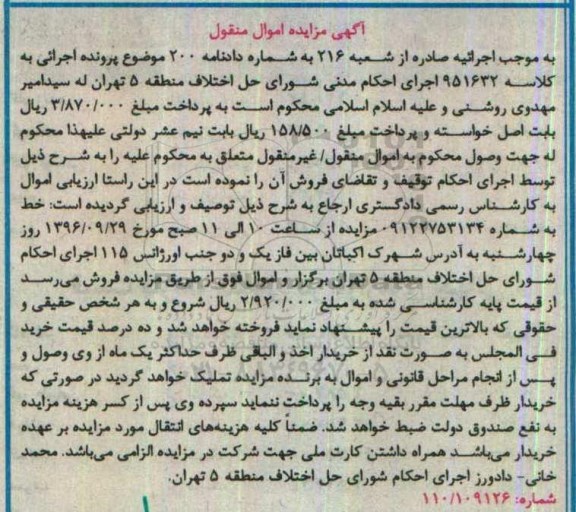 آگهی مزایده اموال منقول
به موجب اجرائیه صادره از شعبه ۲۱۶ به شماره دادنامه ۲۰۰ موضوع پرونده اجرائی به
کلاسه ۹۵۱۶۳۲ اجرای احکام مدنی شورای حل اختلاف منطقه ۵ تهران له سیدامیر
مهدوی روشنی و علیه اسلام اسلامی محکوم است به پرداخت مبلغ ۳/۸۷۰/۰۰۰ ریال
بابت اصل خواسته و پرداخت مبلغ ۱۵۸/۵۰۰ ریال بابت نیم عشر دولتی علیهذا محکوم
له جهت وصول محکوم به اموال منقول/غیرمنقول متعلق به محکوم علیه را به شرح ذیل
توسط اجرای احکام توقیف و تقاضای فروش آن را نموده است در این راستا ارزیابی اموال
به کارشناس رسمی دادگستری ارجاع به شرح ذیل توصیف و ارزیابی گردیده است: خط
به شماره ۰۹۱۲۲۷۵۳۱۳۴ مزایده از ساعت ۱۰ الی ۱۱ صبح مورخ ۱۳۹۶/۰۹/۲۹ روز
چهارشنبه به آدرس شهرک اکباتان بین فاز یک و دو جنب اورژانس ۱۱۵ اجرای احکام
شورای حل اختلاف منطقه ۵ تهران برگزار و اموال فوق از طریق مزایده فروش می‌رسد
از قیمت پایه کارشناسی شده به مبلغ ۲/۹۲۰/۰۰۰ ریال شروع و به هر شخص حقیقی و
حقوقی که بالاترین قیمت را پیشنهاد نماید فروخته خواهد شد و ده درصد قیمت خرید
فی المجلس به صورت نقد از خریدار اخذ و البقی ظرف حداکثر یک ماه از وی وصول و
پس از انجام مراحل قانونی و اموال به برنده مزایده تملیک خواهد گردید در صورتی که
خریدار ظرف مهلت مقرر بقیه وجه را پرداخت ننماید سپرده وی پس از کسر هزینه مزایده
به نفع صندوق دولت ضبط خواهد شد. ضمناً کلیه هزینه‌های انتقال مورد مزایده بر عهده
خریدار می‌باشد همراه داشتن کارت ملی جهت شرکت در مزایده الزامی می‌باشد. محمد
خانی- دادورز اجرای احکام شورای حل اختلاف منطقه ۵ تهران.
شماره: ۱۱۰/۱۰۹۱۲۶